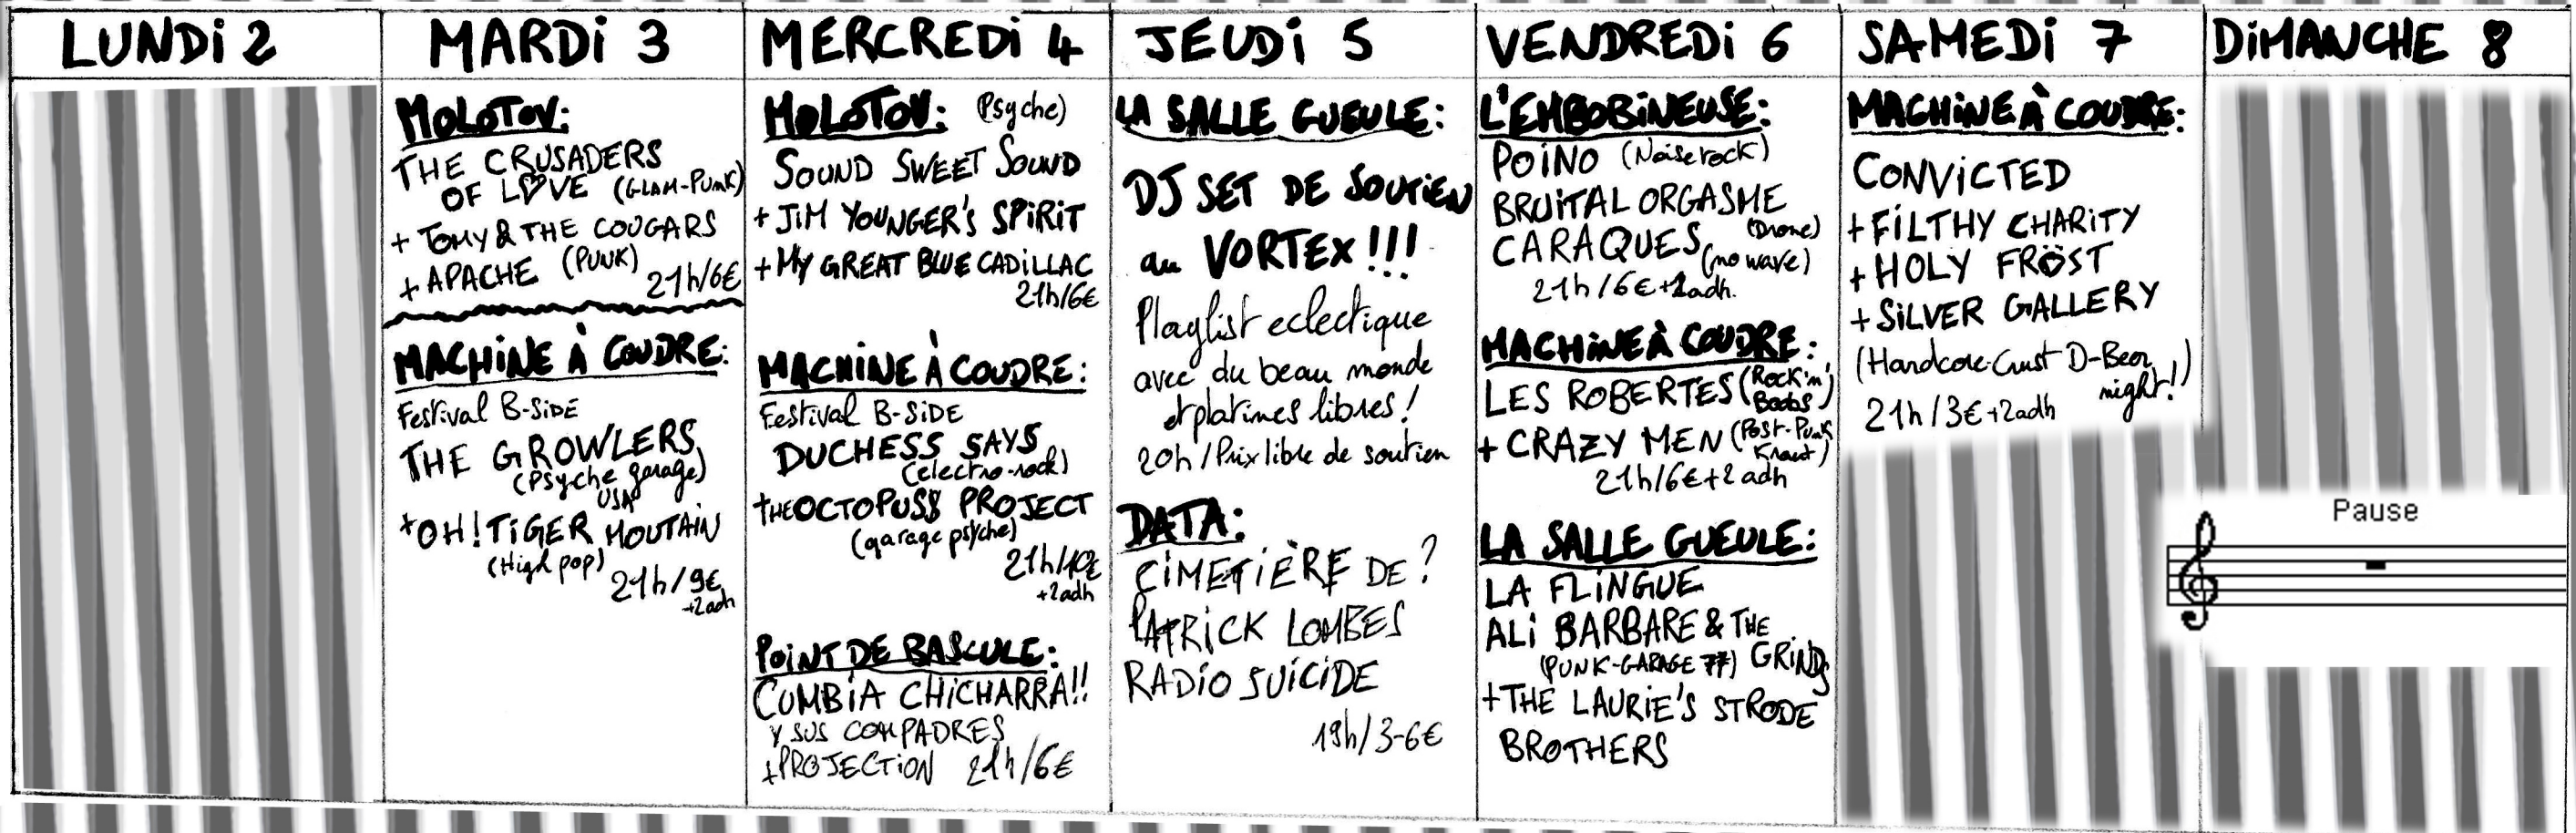 LUNDi 2
MARDi 3
MOLOTOV:
THE CRUSADERS
OF LOVE (GLAM-PUNK)
+ TOMY & THE COUGARS
+ APACHE (PUNK)
21h/6€
MACHINE À COUDRE:
Festival B-SiDE
THE GROWLERS
(Psyche garage)
USA
+OH! TiGER MOUTAiN
(High pop)
21h/9€
+2adh
MERCREDi 4
MOLOTOV: (Psyche)
SOUND SWEET SOUND
+ JiM YOUNGER'S SPiRiT
+ MY GREAT BLUE CADiLLAC
21h/6€
MACHiNE À COUDRE:
Festival B-SiDE
DUCHESS SAYS
(electro-rock)
+THE OCTOPUSS PROJECT
(garage psyche)
21h/10€
+2adh
POiNT DE BASCULE:
CUMBiA CHiCHARRA!!
Y SUS COMPADRES
+PROJECTiON 21h/6€
JEUDi 5
LA SALLE GUEULE:
DJ SET DE SOUTiEN
au VORTEX!!!
Playlist eclectique
avec du beau monde
et platines libres!
20h/Prix libre de soutien
DATA:
CiMETiÈRE DE ?
PATRiCK LOMBES
RADiO SUiCiDE
19h/3-6€
VENDREDi 6
L'EMBOBiNEUSE:
POiNO (Noise rock)
BRUiTAL ORGASME
(Drone)
CARAQUES (no wave)
21h/6€+2adh.
MACHiNE À COUDRE:
LES ROBERTES (Rock'n'
Boobs)
+ CRAZY MEN (Post-Punk
Kraut)
21h/6€+2 adh
LA SALLE GUEULE:
LA FLiNGUE
ALi BARBARE & THE
(PUNK-GARAGE 77) GRiNDS
+THE LAURiE'S STRODE
BROTHERS
SAMEDi 7
MACHiNE À COUDRE:
CONViCTED
+ FiLTHY CHARiTY
+ HOLY FRÖST
+ SiLVER GALLERY
(Hardcore-Crust D-Beer
night!)
21h/3€+2adh
DiMANCHE 8
Pause